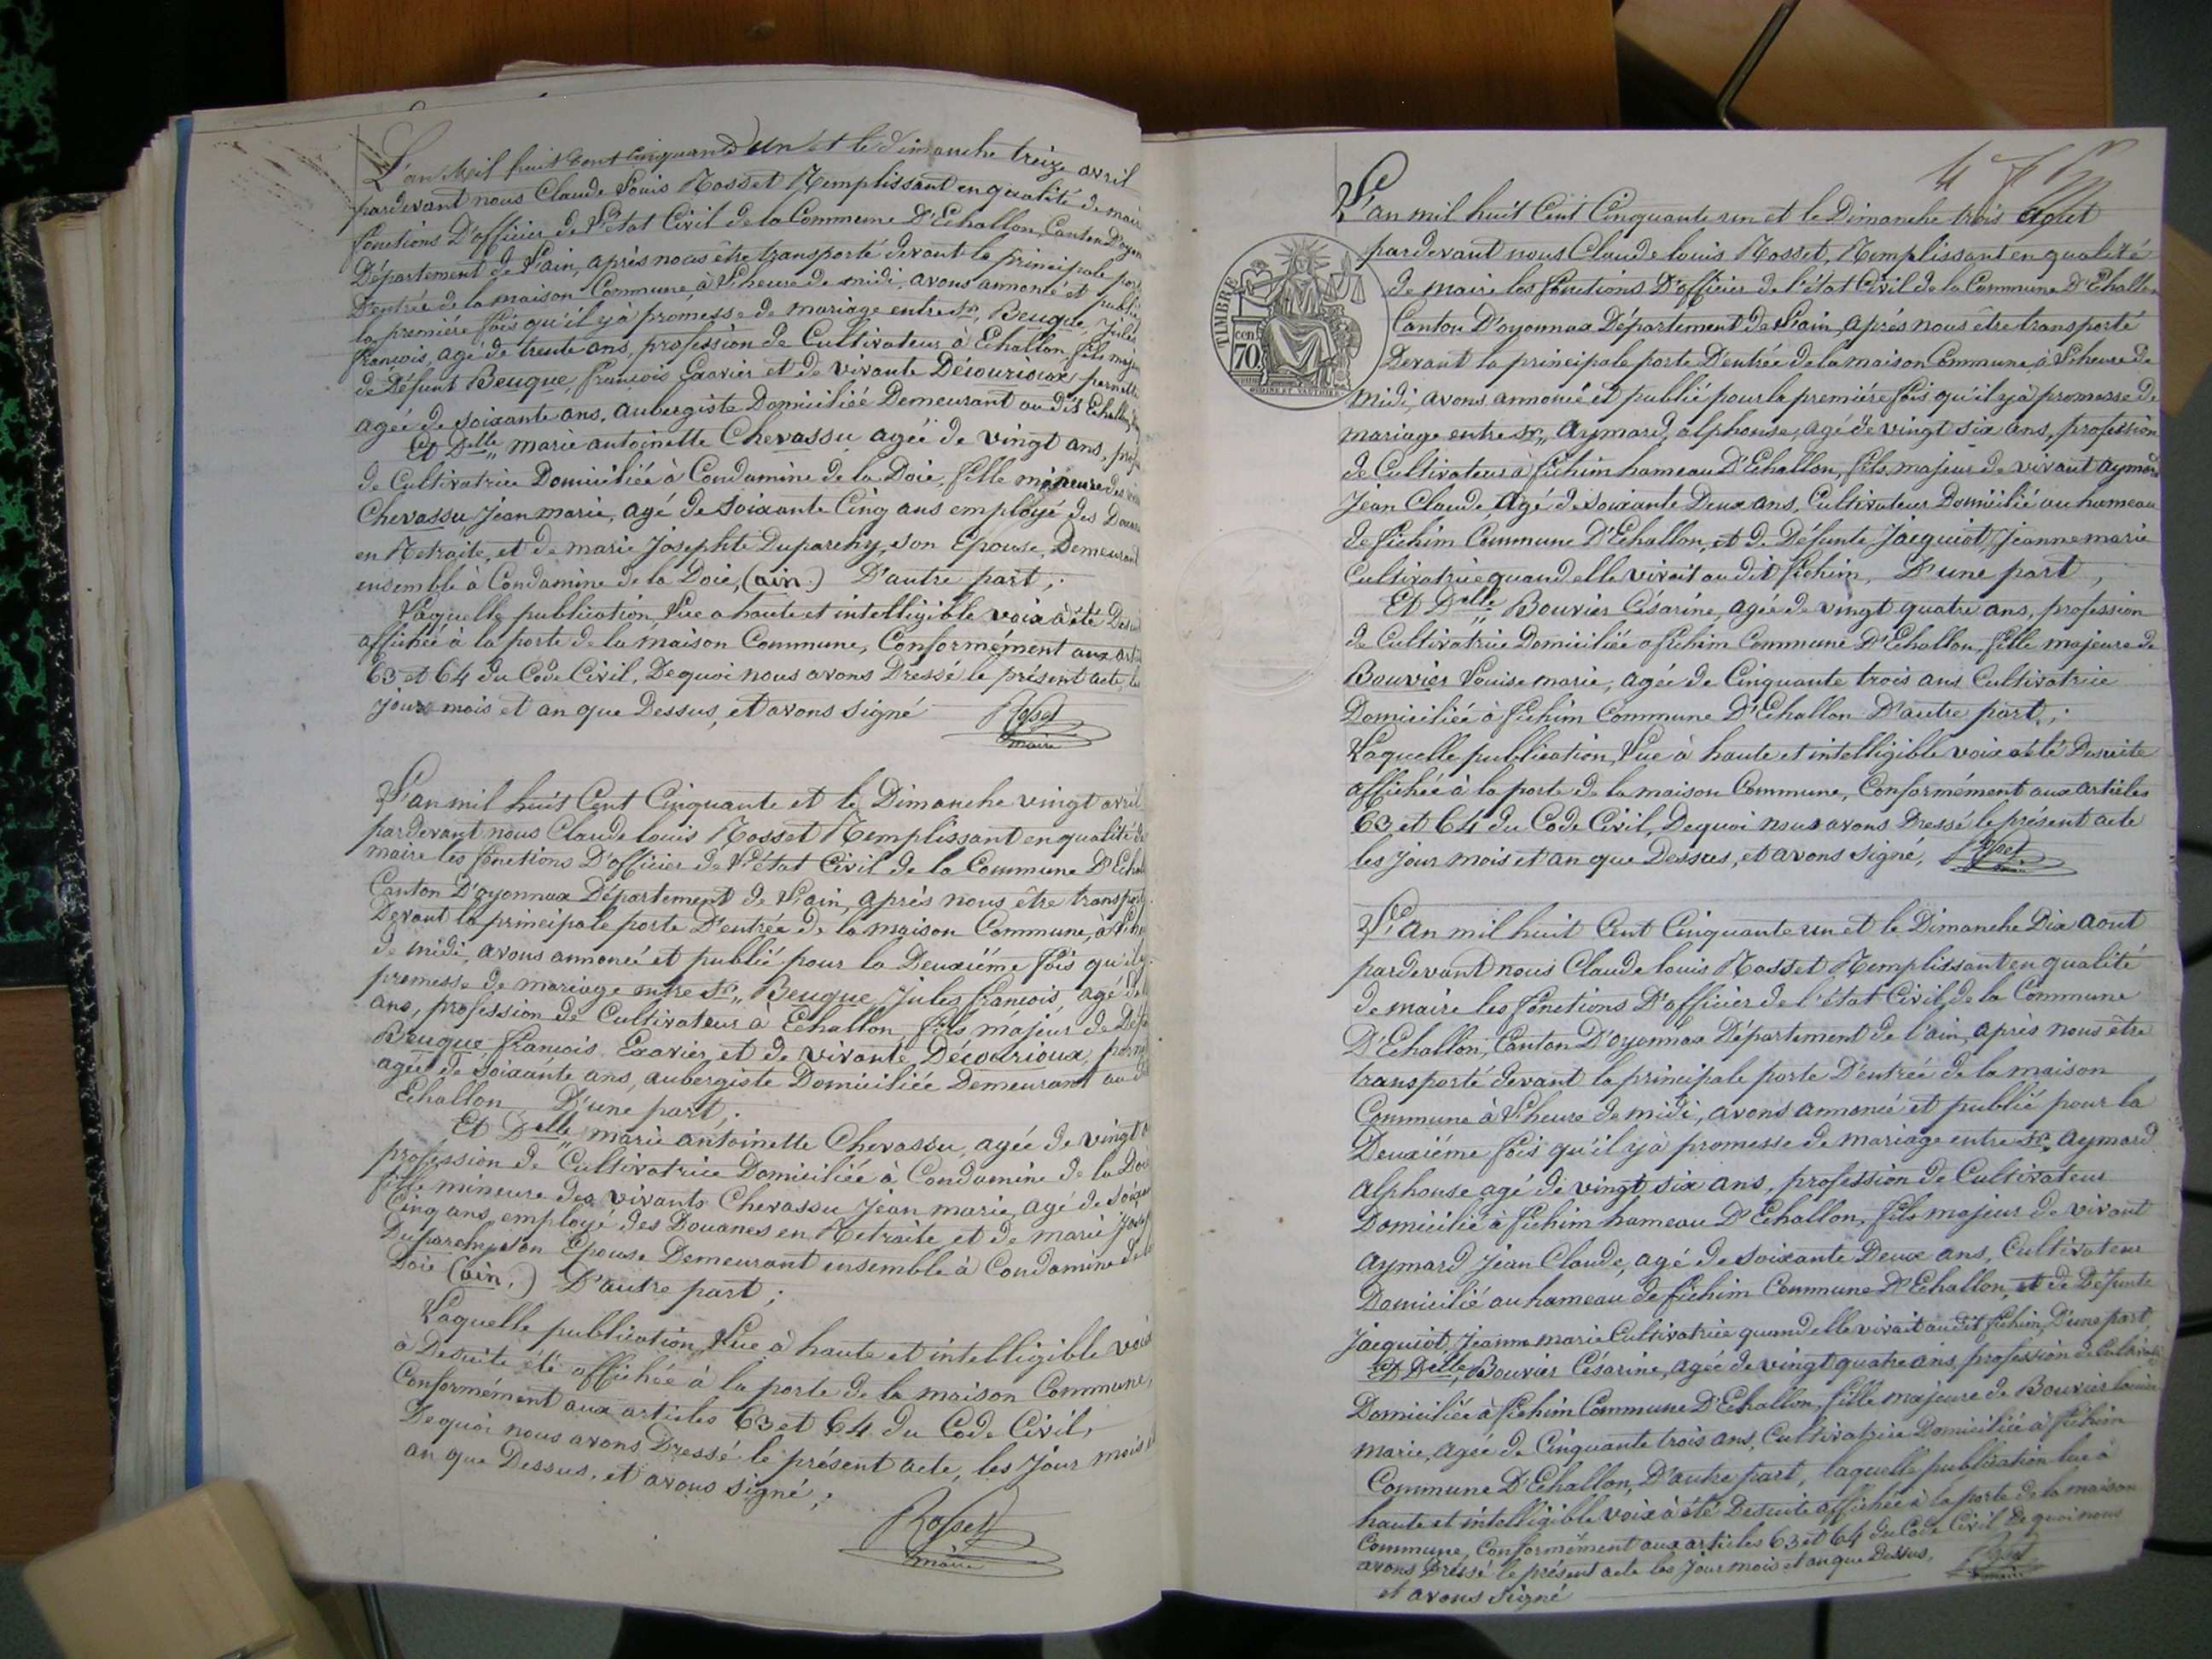 L'an Mil huit Cent Cinquante Un et le dimanche treize avril
pardevant nous Claude Louis Rosset Remplissant en qualité de maire
fonctions D'officier de L'état Civil de la Commune D'Echallon, Canton D'oyon
Département de L'ain, après nous être transporté devant la principale por
D'entrée de la maison Commune, à L'heure de midi, avons annoncé et publié
la première fois qu'il y à promesse de mariage entre Sr,, Beuque, Jules
françois, agé de trente ans, profession de Cultivateur à Echallon, fils maj
de Défunt Beuque, françois Exavier et de vivante Décourioux pernette
agée de soixante ans, aubergiste Domiciliée Demeurant au dit Echallon
Et Delle,, marie antoinette Chevassu agée de vingt ans, prof
de Cultivatrice Domiciliée à Condamine de la Doie, fille mineure des
Chevassu Jean marie, agé de Soixante Cinq ans employé des Douanes
en Retraite, et de marie Josephte Duparchy, son Epouse, Demeurant
ensemble à Condamine de la Doie, (ain.) D'autre part;
Laquelle publication, Lue a haute et intelligible voix à été Desuite
affichée à la porte de la maison Commune, Conformément aux arti
63 et 64 du Code Civil, Dequoi nous avons Dressé le présent acte, les
jours mois et an que Dessus, et avons signé
Rosset
maire
L'an mil huit Cent Cinquante et le Dimanche vingt avril
pardevant nous Claude louis Rosset Remplissant en qualité de
maire les fonctions D'officier de L'état Civil de la Commune D'Echal
Canton D'oyonnax Département de L'ain, après nous être transport
Devant la principale porte D'entrée de la maison Commune, à L'he
de midi, avons annoncé et publié pour la Deuxiéme fois qu'il y
promesse de mariage entre Sr,, Beuque Jules françois, agé de
ans, profession de Cultivateur à Echallon fils majeur de Défu
Beuque françois Exavier, et de vivante Décourioux, pern
agée de Soixante ans, aubergiste Domiciliée Demeurant au d
Echallon D'une part;
Et Delle,, marie antoinette Chevassu, agée de vingt
profession de Cultivatrice Domiciliée à Condamine de la Doie
fille mineure des vivants Chevassu Jean marie, agé de Soixan
Cinq ans, employé des Douanes en Retraite et de marie Joseph
Duparchy, son Epouse Demeurant ensemble à Condamine de la
Doie (ain.) D'autre part;
Laquelle publication, Lue à haute et intelligible voix
à Desuite été affichée à la porte de la maison Commune,
Conformément aux articles 63 et 64 du Code Civil,
Dequoi nous avons Dressé le présent acte, les Jour mois et
an que Dessus, et avons signé;
Rosset
maire
L'an mil huit Cent Cinquante un et le Dimanche trois Aout
pardevant nous Claude louis Rosset, Remplissant en qualité
de maire les fonctions D'officier de l'état Civil de la Commune D'Echallon
Canton D'oyonnax Département de L'ain, après nous être transporté
Devant la principale porte D'entrée de la maison Commune, à L'heure de
midi, avons annoncé et publié pour la première fois qu'il y à promesse de
mariage entre Sr,, Aymard, alphonse, agé de vingt six ans, profession
de Cultivateur à fichim hameau D'Echallon, fils majeur de vivant aymard
Jean Claude, Agé de soixante Deux ans, Cultivateur Domicilié au hameau
de fichim Commune D'Echallon, et de Défunte Jacquiot, Jeanne marie
Cultivatrice quand elle vivait au dit fichim, D'une part,
Et Delle,, Bouvier Césarine, agée de vingt quatre ans, profession
de Cultivatrice Domiciliée a fichim Commune D'Echallon, fille majeure de
Bouvier Louise marie, agée de Cinquante trois ans Cultivatrice
Domiciliée à fichim Commune D'Echallon D'autre part;
Laquelle publication, Lue à haute et intelligible voix a été Desuite
affichée à la porte de la maison Commune, Conformément aux articles
63 et 64 du Code Civil, Dequoi nous avons Dressé le présent acte
les Jour mois et an que Dessus, et avons signé, Rosset
maire
TIMBRE
70
cent
L'an mil huit Cent Cinquante un et le Dimanche Dix aout
pardevant nous Claude louis Rosset Remplissant en qualité
de maire les fonctions D'officier de l'état Civil, de la Commune
D'Echallon, Canton D'oyonnax Département de l'ain, après nous être
transporté devant la principale porte D'entrée de la maison
Commune à L'heure de midi, avons annoncé et publié pour la
Deuxiéme fois qu'il y a promesse de mariage entre Sr,, aymard
alphonse agé de vingt six ans, profession de Cultivateur
Domicilié à fichim hameau D'Echallon, fils majeur de vivant
aymard Jean Claude, agé de soixante Deux ans, Cultivateur
Domicilié au hameau de fichim Commune D'Echallon, et de Défunte
Jacquiot, Jeanne marie Cultivatrice quand elle vivait au dit fichim, D'une part,
Et Delle,, Bouvier Césarine, agée de vingt quatre ans, profession de Cultivatrice
Domiciliée à fichim Commune D'Echallon, fille majeure de Bouvier louise
marie, agée de Cinquante trois ans, Cultivatrice Domiciliée à fichim
Commune D'Echallon, D'autre part, laquelle publication lue à
haute et intelligible voix à été Desuite affichée à la porte de la maison
Commune, Conformément aux articles 63 et 64 du Code Civil, de quoi nous
avons Dressé le présent acte les Jour mois et an que Dessus, Rosset
et avons signé maire